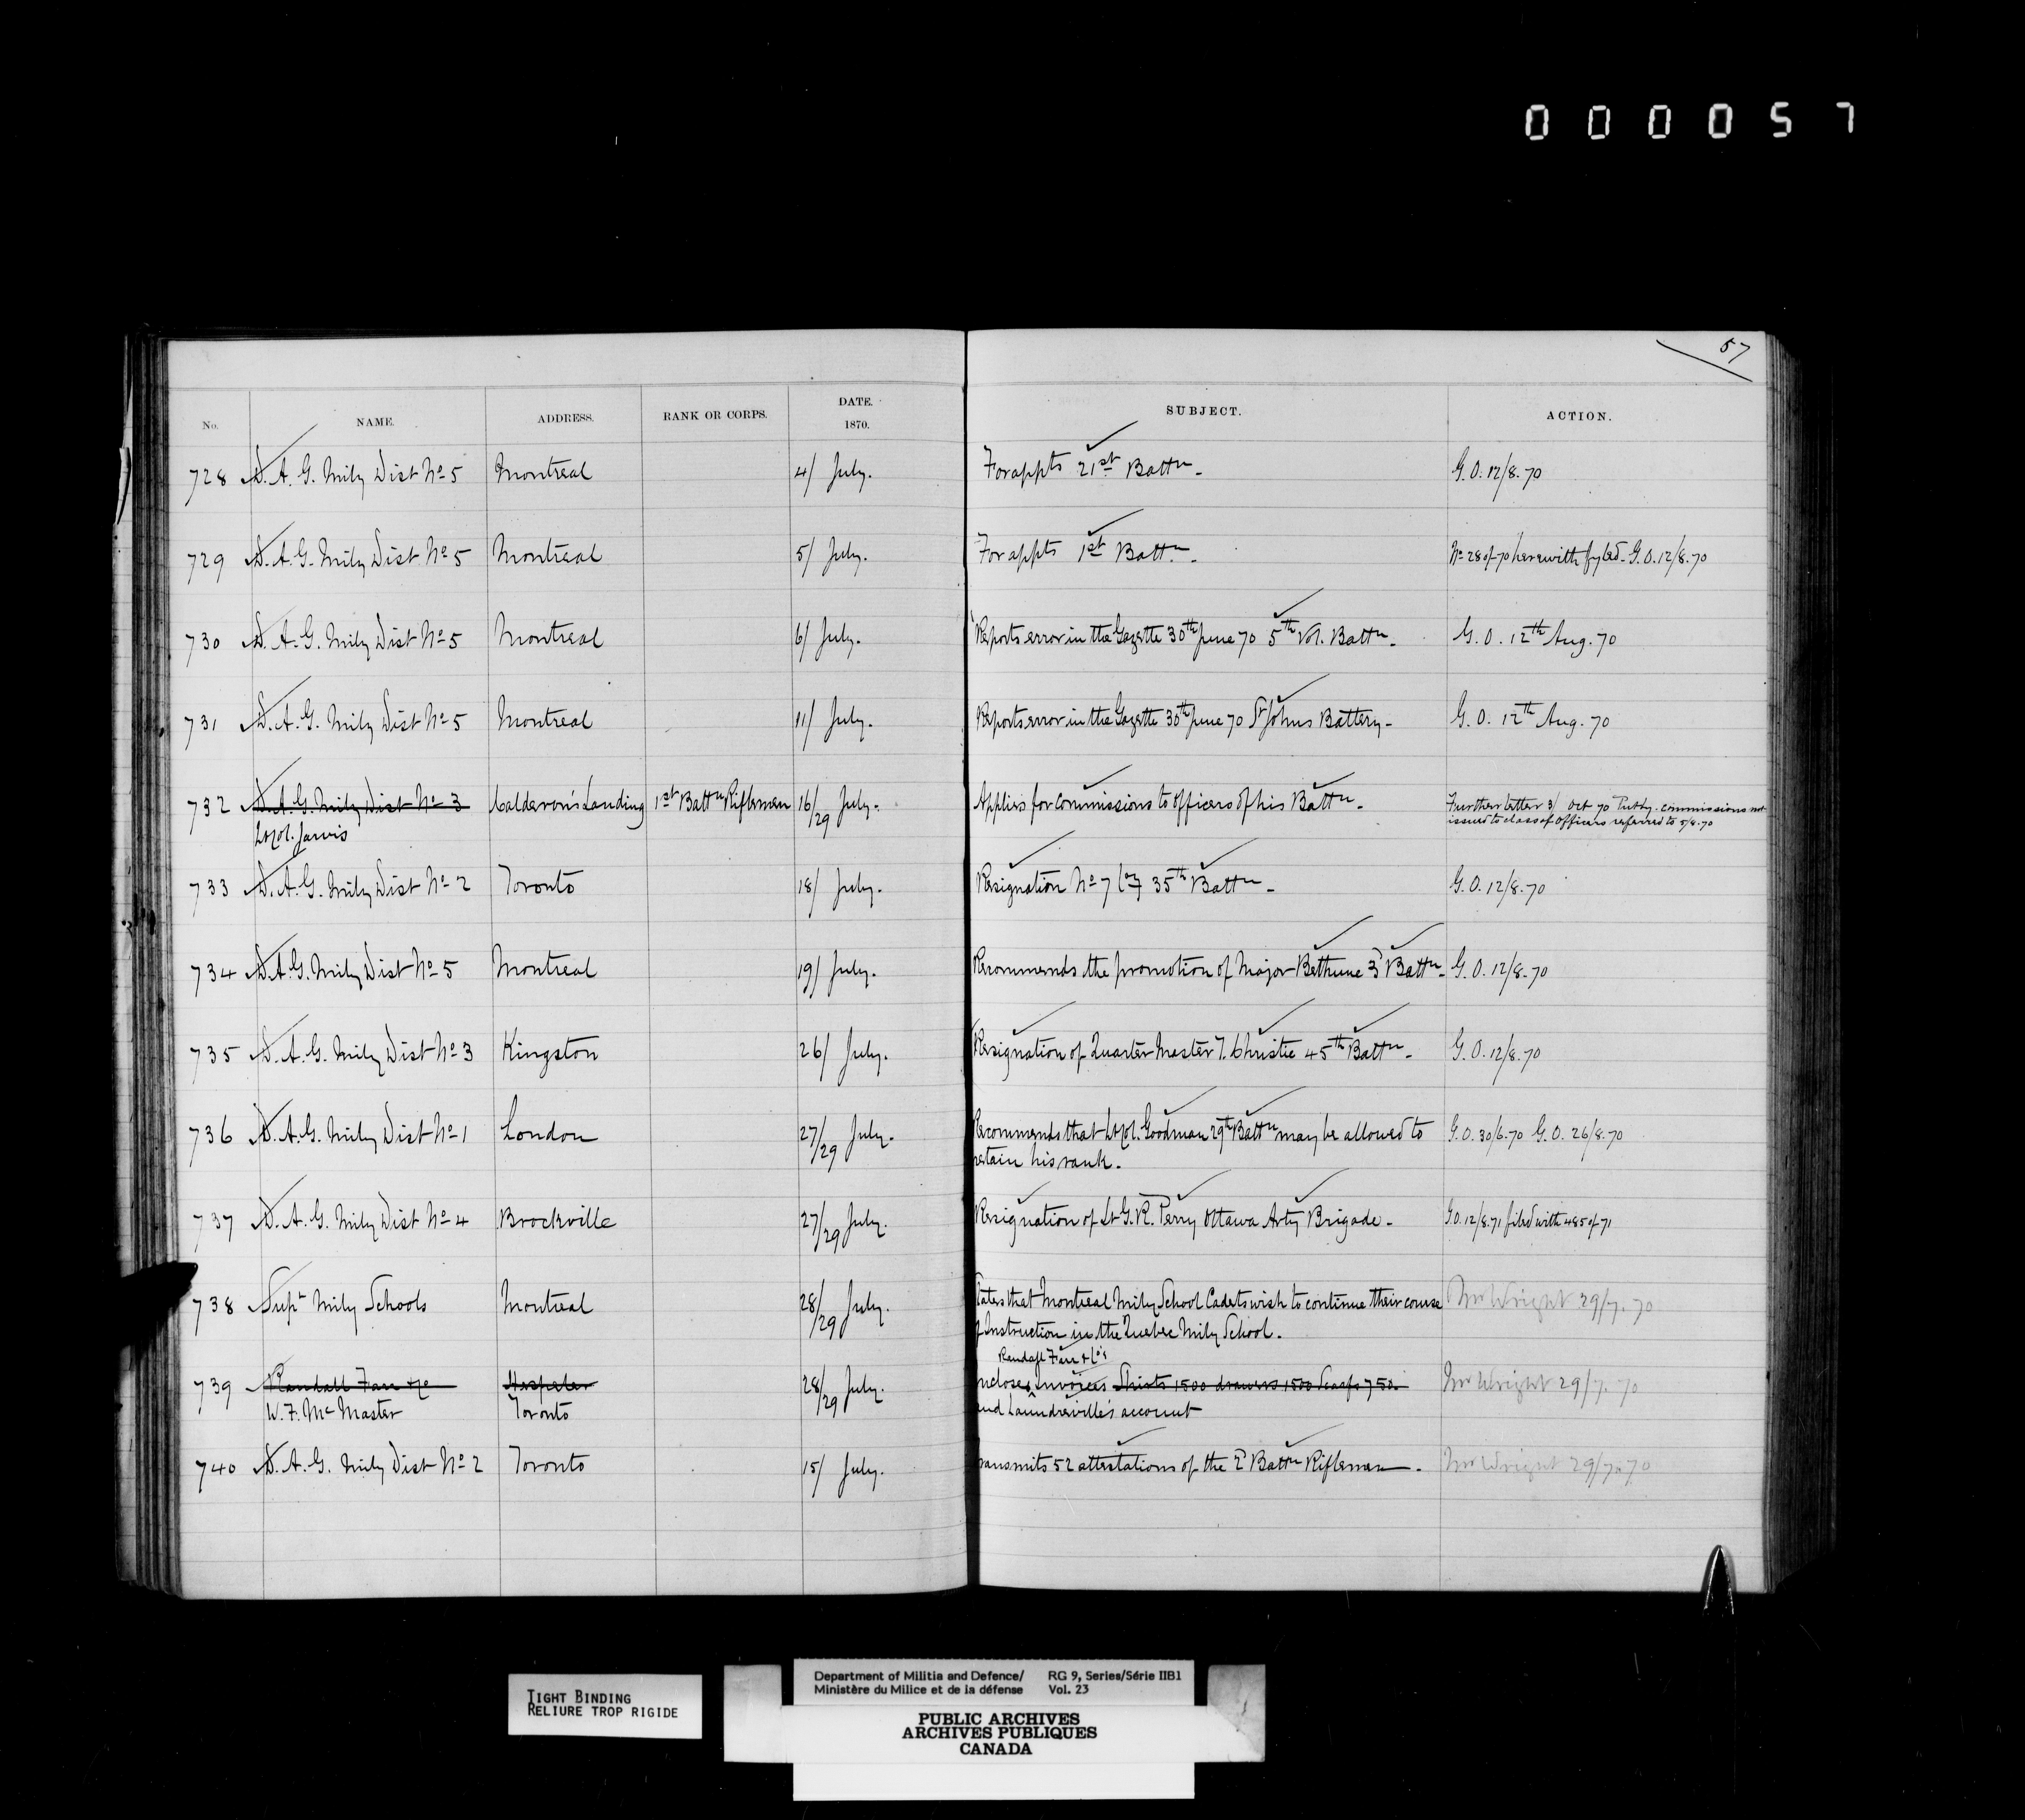 000057
57
No. NAME. ADDRESS. RANK OR CORPS. DATE. 1870. SUBJECT. ACTION.
728 D. A. G. Mily Dist No 5 Montreal 4/ July. For appts 21st Battn - G. O. 12/8.70
729 D. A. G. Mily Dist No 5 Montreal 5/ July. For appts 1st Battn. - No 28 of 70 herewith fyled - G. O. 12/8.70
730 D. A. G. Mily Dist No 5 Montreal 6/ July. Reports error in the Gazette 30th June 70 5th Vol. Battn - G. O. 12th Aug. 70
731 D. A. G. Mily Dist No 5 Montreal 11/ July. Reports error in the Gazette 30th June 70 St Johns Battery - G. O. 12th Aug. 70
732 D. A. G. Mily Dist No 3 Calderon's Landing 1st Battn Riflemen 16/29 July. Applies for commissions to officers of his Battn - Further letter 3/ Oct 70 commissions not
Lt Col. Jarvis issued to class of Officers referred to 5/8.70
733 D. A. G. Mily Dist No 2 Toronto 18/ July. Resignation No 7 Coy 35th Battn - G. O. 12/8.70
734 D. A. G. Mily Dist No 5 Montreal 19/ July. Recommends the promotion of Major Bethune 3d Battn - G. O. 12/8.70
735 D. A. G. Mily Dist No 3 Kingston 26/ July. Resignation of Quarter Master T. Christie 45th Battn - G. O. 12/8.70
736 D. A. G. Mily Dist No 1 London 27/29 July. Recommends that Lt Col. Goodman 29th Battn may be allowed to G. O. 30/6.70 G. O. 26/8.70
retain his rank.
737 D. A. G. Mily Dist No 4 Brockville 27/29 July. Resignation of Lt G. R. Perry Ottawa Arty Brigade - G. O. 12/8.71 filed with 485 of 71
738 Supt Mily Schools Montreal 28/29 July. States that Montreal Mily School Cadets wish to continue their course Mr Wright 29/7.70
of Instruction in the Quebec Mily School.
Randall Farr & Co's
739 Randall Farr & Co Hespeler 28/29 July. Incloses Invoices Shirts 1500 drawers 1500 Scarfs 750 Mr Wright 29/7.70
W. F. McMaster Toronto and account
740 D. A. G. Mily Dist No 2 Toronto 15/ July. Transmits 52 attestations of the 2d Battn Riflemen. Mr Wright 29/7.70
TIGHT BINDING
RELIURE TROP RIGIDE
Department of Militia and Defence/ RG 9, Series/Série IIB1
Ministère du Milice et de la défense Vol. 23
PUBLIC ARCHIVES
ARCHIVES PUBLIQUES
CANADA